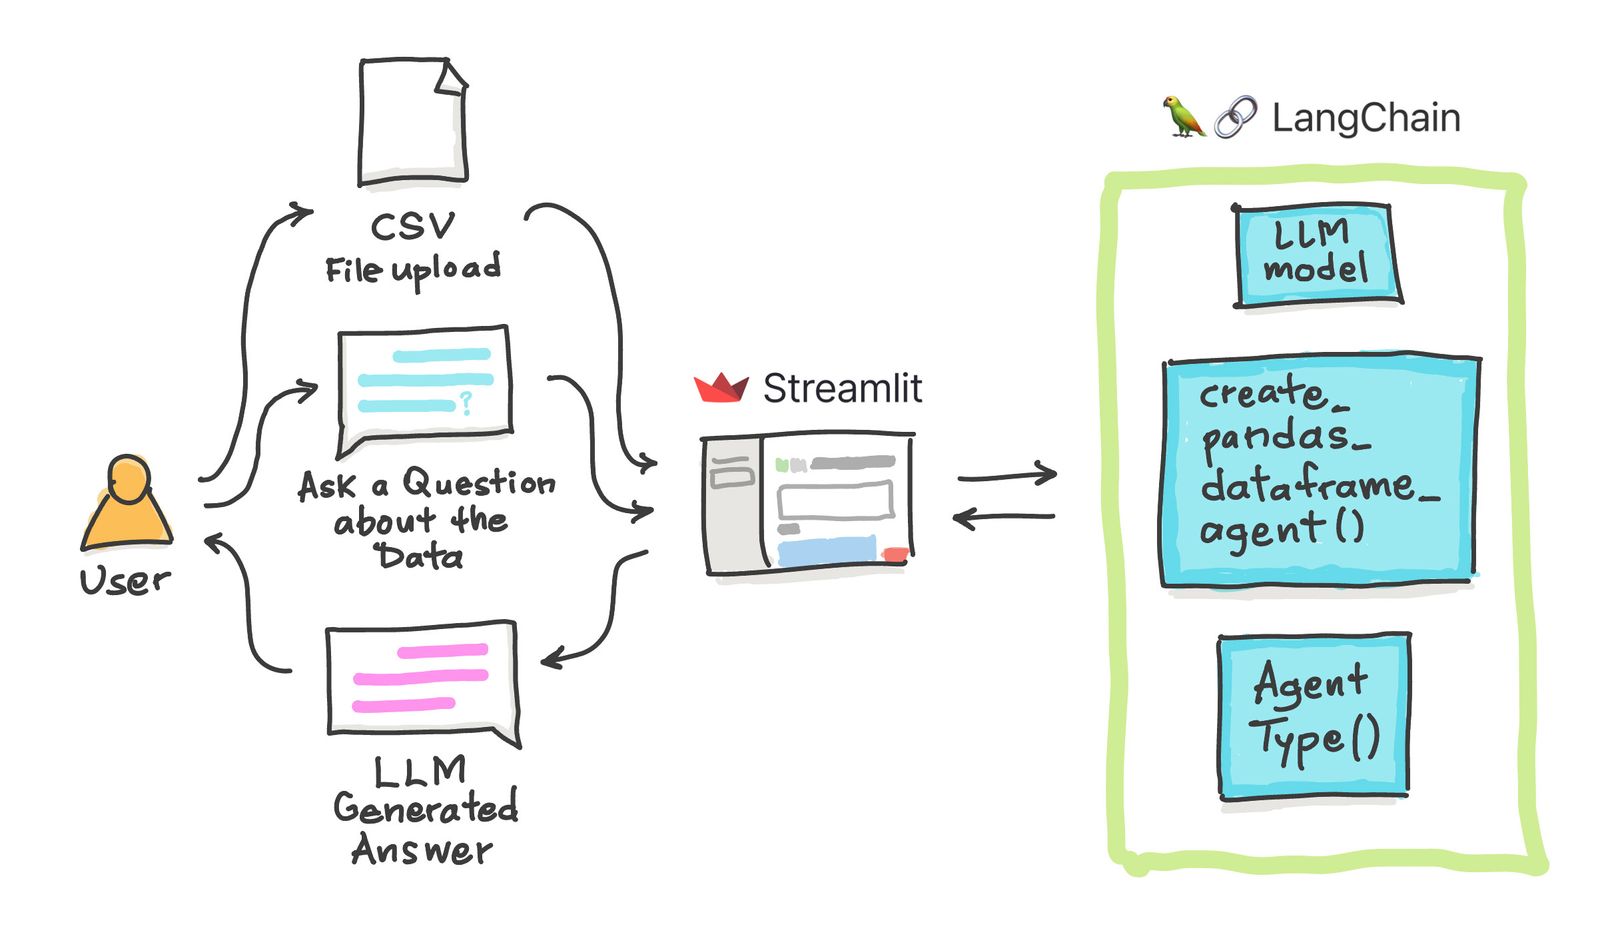 CSV
File upload
Ask a Question
about the
Data
User
LLM
Generated
Answer
Streamlit
LangChain
LLM
model
create_
pandas_
dataframe_
agent()
Agent
Type()